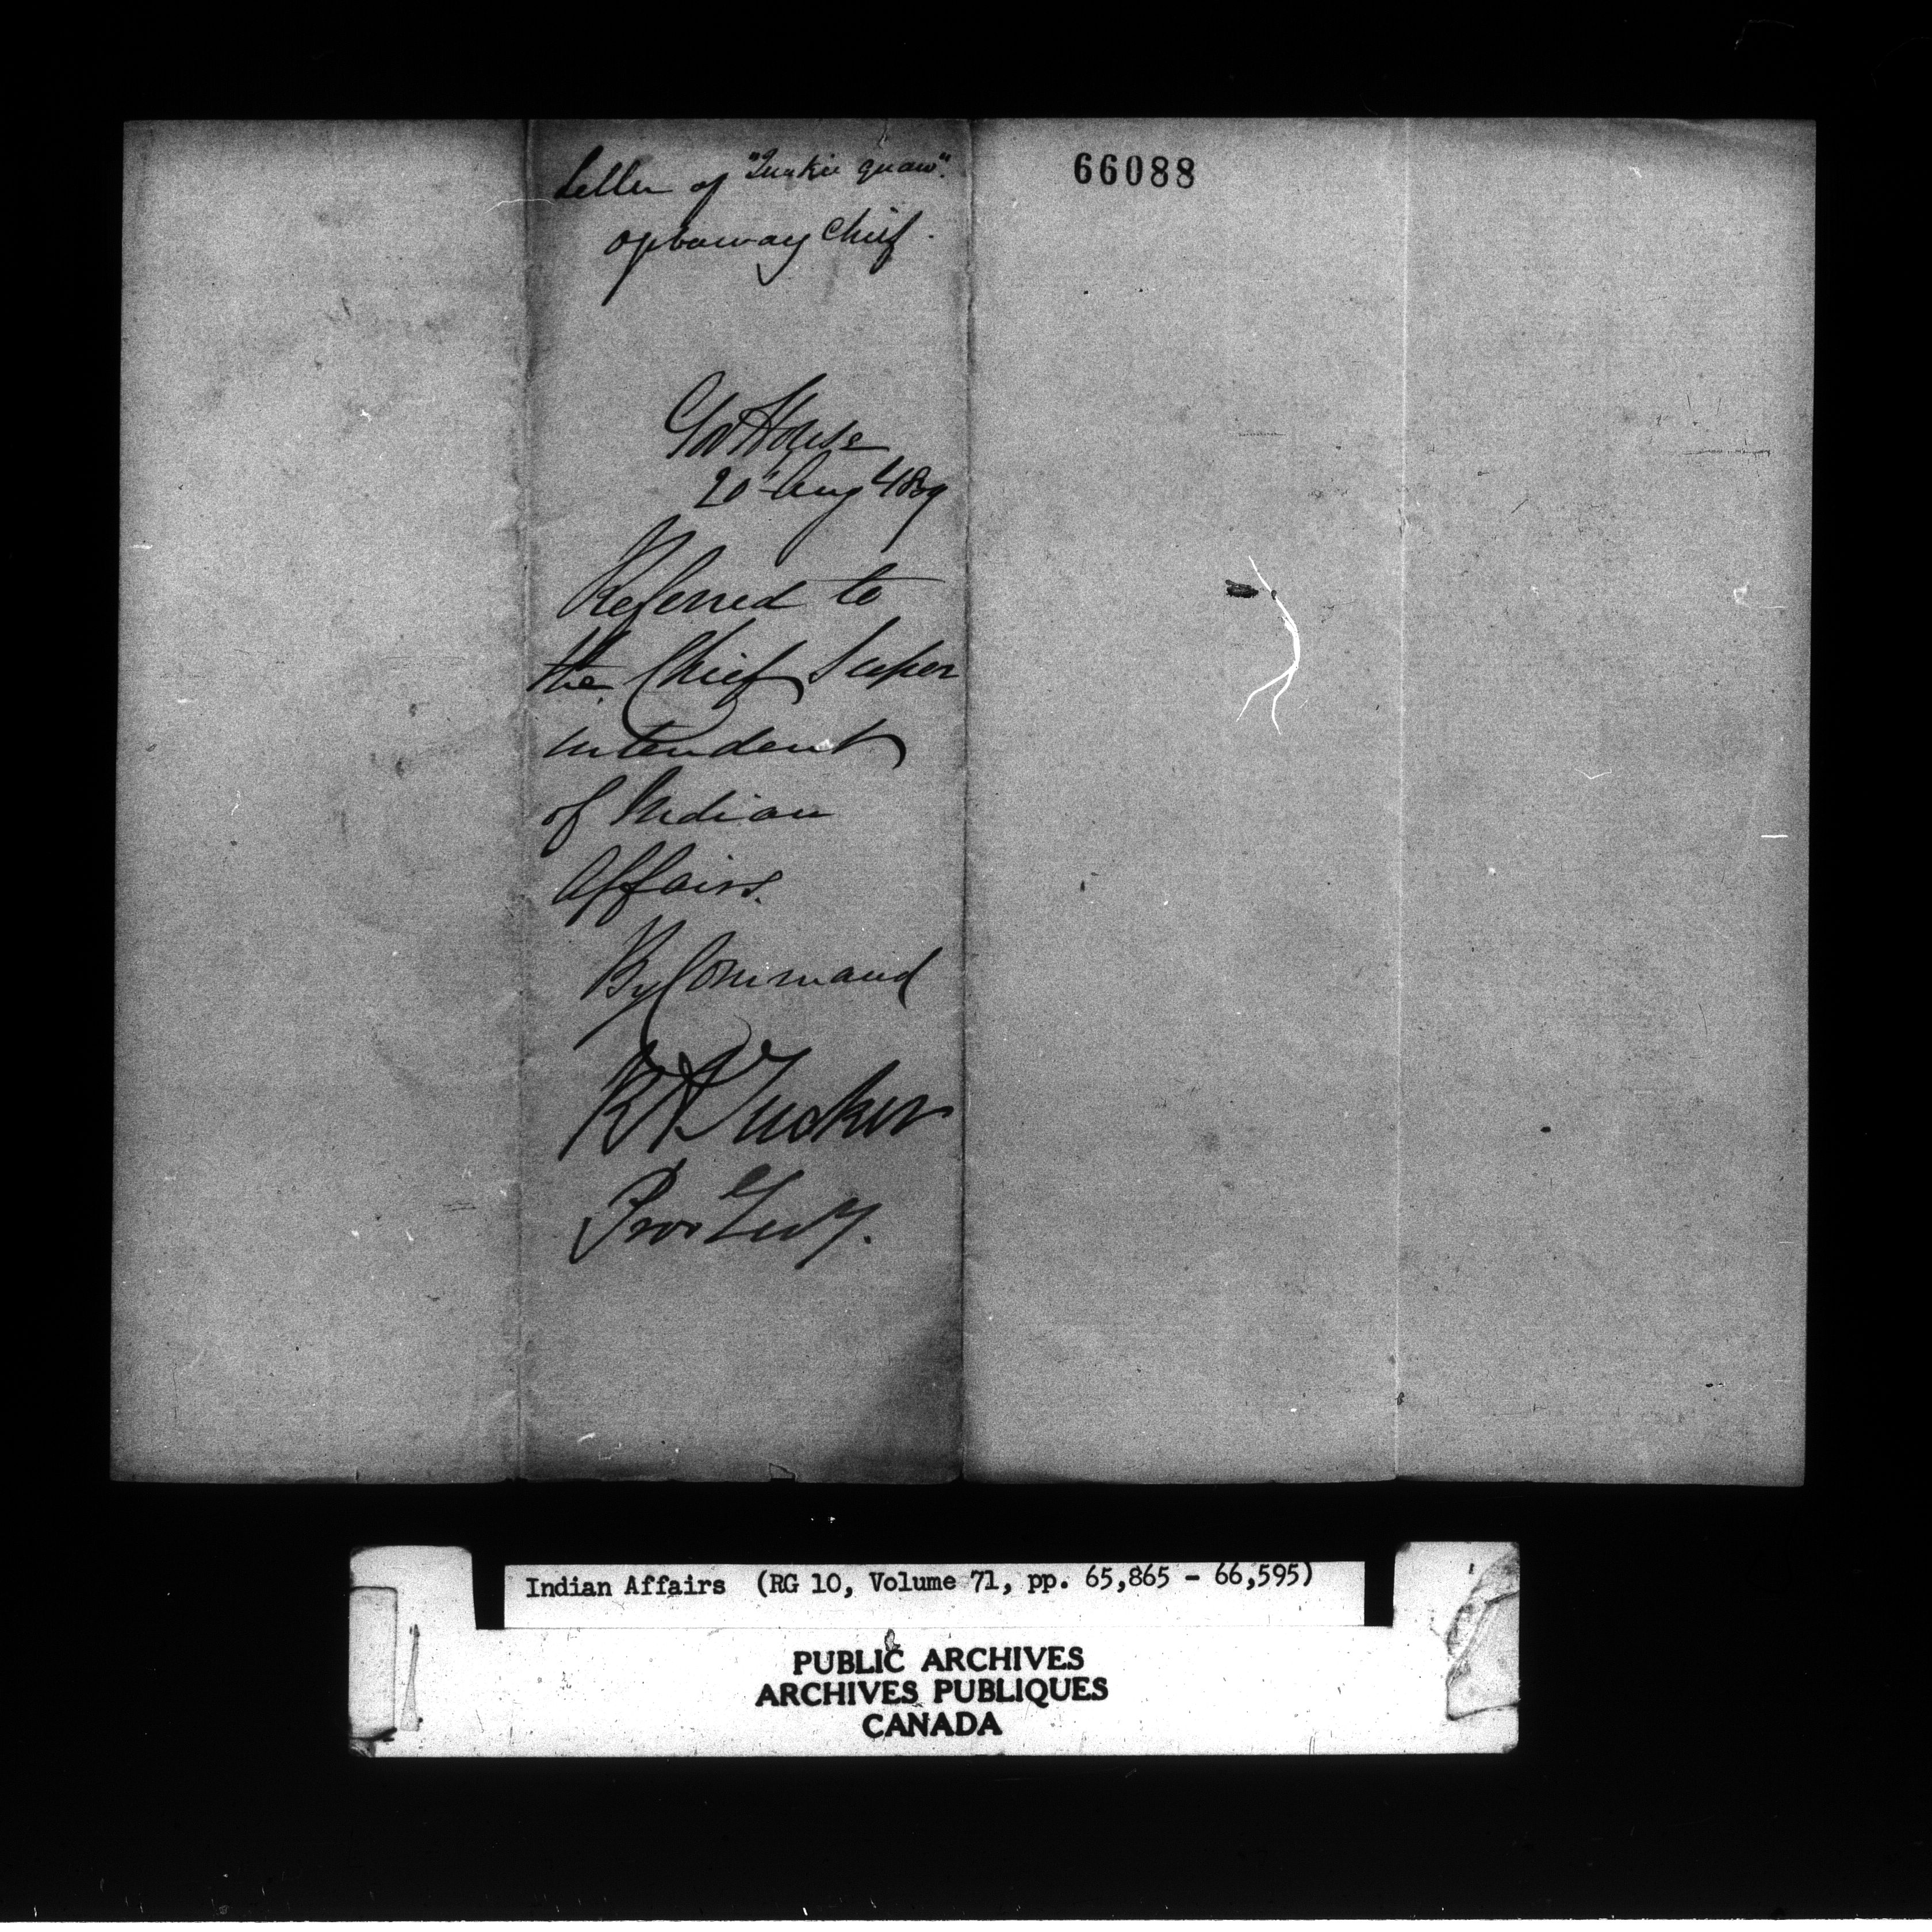 Letter of "Quakie quaw".
Ojibaway Chief.
66088
Gov House
20" Aug 1839
Referred to
the Chief Super
intendent
of Indian
Affairs.
By Command
R A Tucker
Prov Secy.
Indian Affairs (RG 10, Volume 71, pp. 65,865 - 66,595)
PUBLIC ARCHIVES
ARCHIVES PUBLIQUES
CANADA